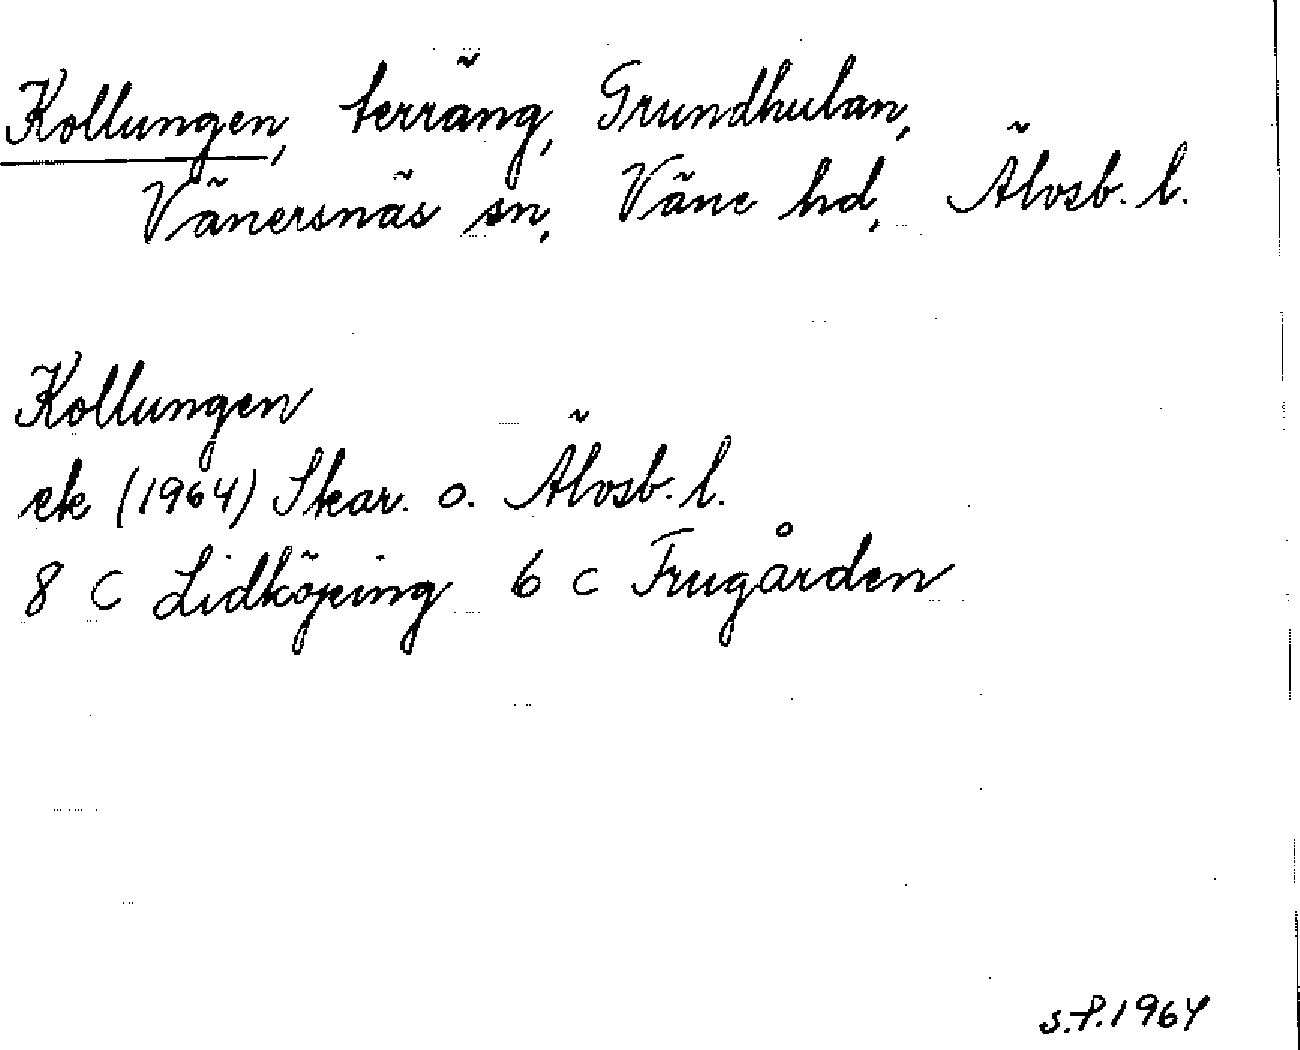 Kollungen, terräng, Grundhulan,
Vänersnäs sn, Väne hd, Älvsb. l.
Kollungen
ek (1964) Skar. o. Älvsb. l.
8 C Lidköping 6 c Frugården
S.P. 1964